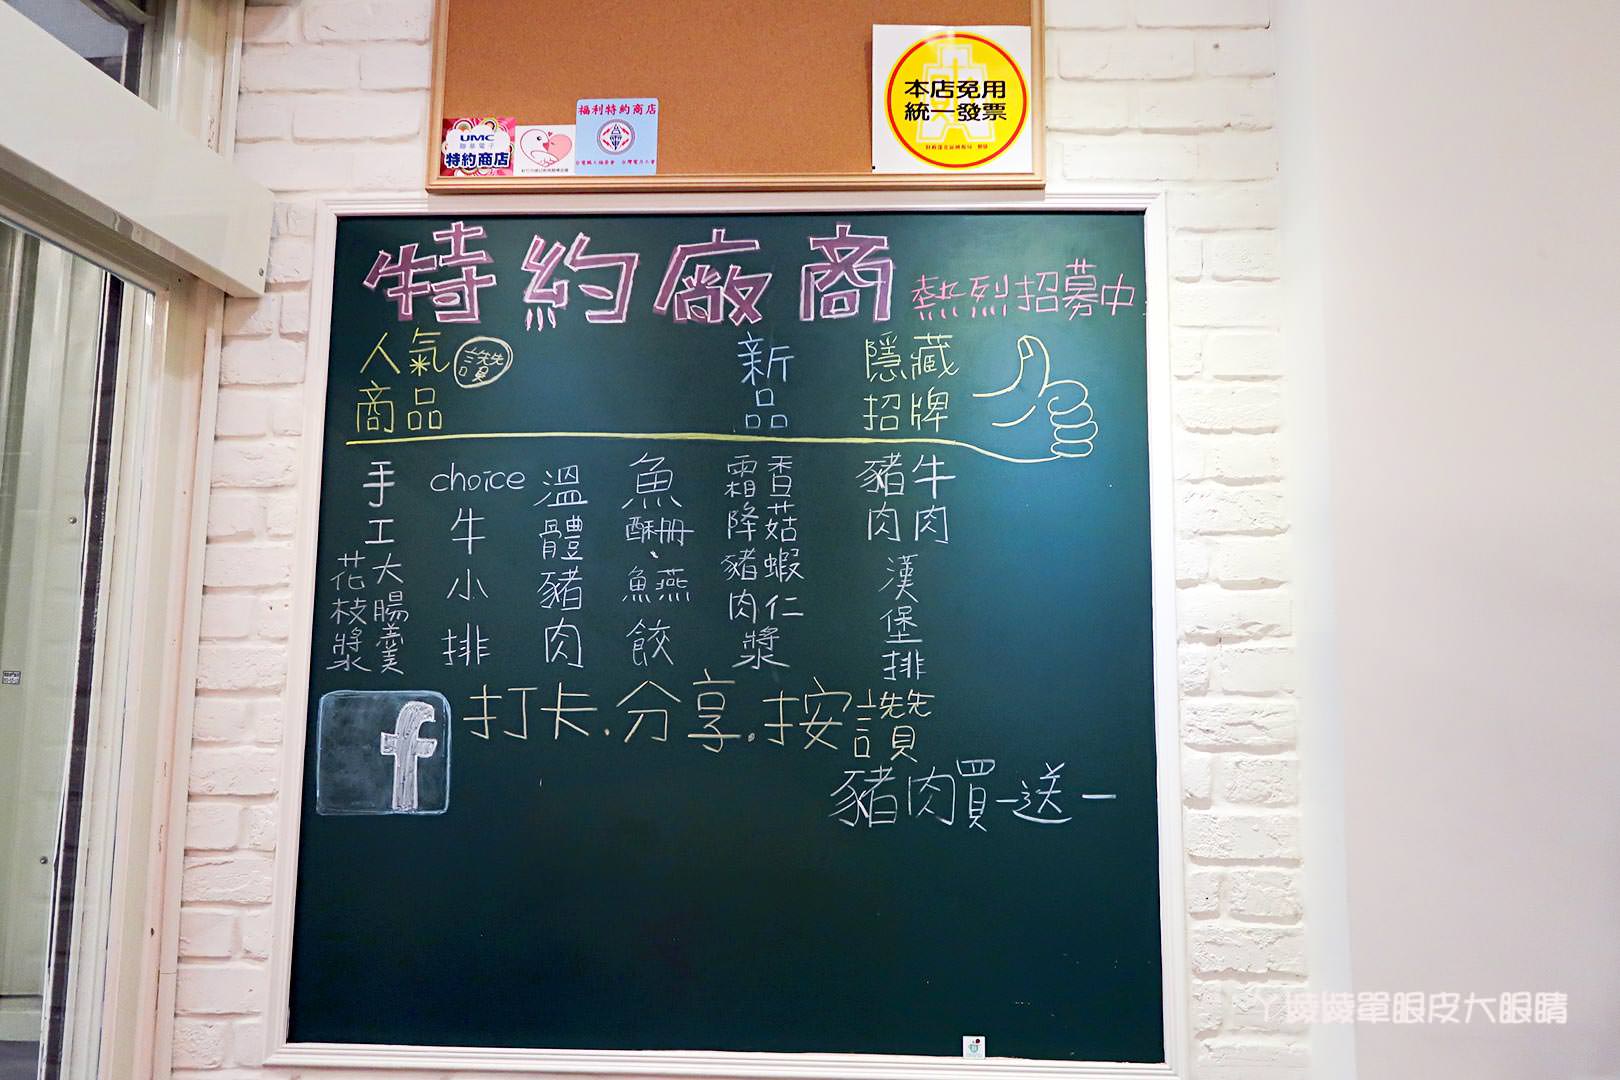 本店免用
統一發票
福利特約商店
UMC
聯華電子
特約商店
特約廠商 熱烈招募中
人氣商品 讚
新品
隱藏招牌
手工大腸羹
花枝漿
choice牛小排
溫體豬肉
魚酥冊、魚燕餃
香菇蝦仁漿
霜降豬肉
牛肉
豬肉
漢堡排
f
打卡.分享.按讚
豬肉買一送一
ㄚ綾綾單眼皮大眼睛